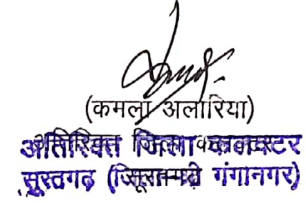 (कमला अलारिया)
अतिरिक्त जिला कलक्टर
सूरतगढ़ गंगानगर)